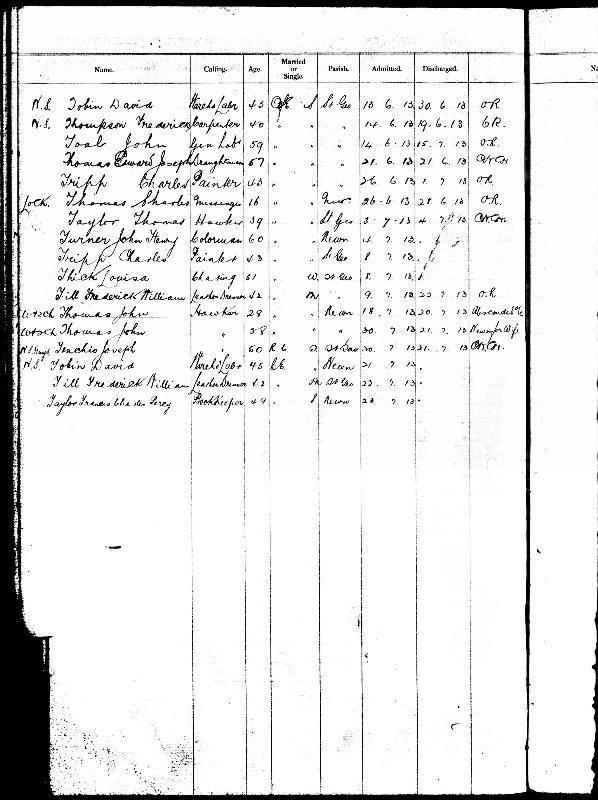 Name. Calling. Age. Married or Single. Parish. Admitted. Discharged. Na
N.S. Tobin David 45 S St Geo 13 6. 13 30. 6. 13 O.R.
N.S. Thompson Frederick Carpenter 40 " " " 14. 6. 13 19. 6. 13
Toal John Gen Lab 59 " " " 14. 6. 13 15. 7. 13 O.R.
Thomas Edward Joseph Draughtsman 67 " " " 21. 6. 13 21 6. 13
Tripp Charles Painter 43 " " " 26. 6. 13 1. 7 13 O.R.
Lock. Thomas Charles Messenger 16 " " 26. 6. 13 28 6. 13 O.R.
Taylor Thomas Hawker 39 " " St Geo 3. 7. 13 4. 7. 13
Turner John Henry Colorman 60 " " Newn 4. 7. 13.
Tripp Charles Painter 43 " " St Geo 8 7. 13.
Thick Louisa Charing 61 " W. St Geo 8. 7. 13.
Till Frederick William Leather Dresser 42 " M " 9. 7. 13 22. 7. 13 O.R.
Thomas John Hawker 28 " " Newn 18. 7. 13 20. 7. 13
Thomas John " 28 " " " 20. 7. 13 21. 7. 13
Joseph 60 R.C. S. St Geo 20. 7. 13 21. 7. 13
N.S. Tobin David 45 C.E. " Newn 21 7. 13.
Till Frederick William Leather Dresser 42 " M St Geo 22. 7. 13
Taylor Francis Charles Percy Bookkeeper 49 " S Newn 23. 7. 13.